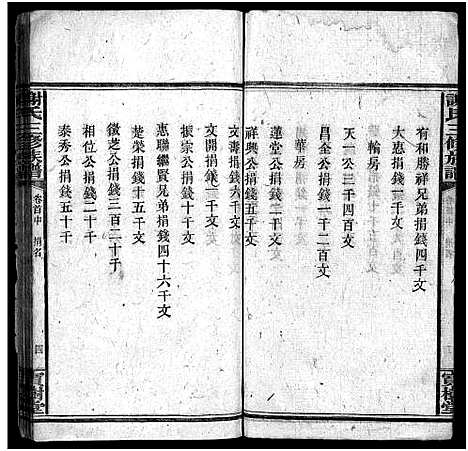 謝氏三修族譜
卷首中
有和勝祥兄弟捐錢四千文
大志捐錢一千文
輪房
天一公三千四百文
昌金公捐錢一千二百文
華房
蓮堂公捐錢二千文
祥興公捐錢六千文
文海捐錢六千文
文開捐錢三千文
振宗捐錢五千文
惠聯繼賢兄弟捐錢四十六千文
楚榮捐錢十五千文
徵芝公捐錢三百二十千
相位公捐錢二十千
泰秀公捐錢五十千
謝氏三修族譜
卷首中
捐名
四
寶樹堂